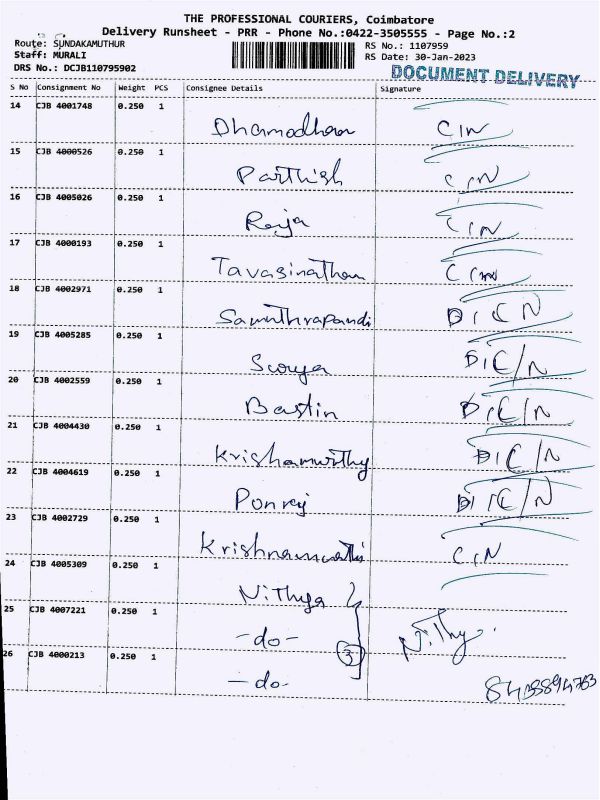 THE PROFESSIONAL COURIERS, Coimbatore
Delivery Runsheet - PRR - Phone No.:0422-3505555 - Page No.:2
Route: SUNDAKAMUTHUR
RS No.: 1107959
Staff: MURALI
RS Date: 30-Jan-2023
DRS No.: DCJB110795902
DOCUMENT DELIVERY
S No Consignment No Weight PCS Consignee Details Signature
14 CJB 4001748 0.250 1
Dhamodharan C/N
15 CJB 4000526 0.250 1
Parthish C/N
16 CJB 4005026 0.250 1
Raja C/N
17 CJB 4000193 0.250 1
Tavasinathan
18 CJB 4002971 0.250 1
Samuthrapandi D/C N
19 CJB 4005285 0.250 1
Sourya D/C/N
20 CJB 4002559 0.250 1
Bastin D/C/N
21 CJB 4004430 0.250 1
Krishamurthy D/C/N
22 CJB 4004619 0.250 1
Ponraj D/C/N
23 CJB 4002729 0.250 1
C/N
24 CJB 4005309 0.250 1
Nithya
25 CJB 4007221 0.250 1
-do- 3 Nithy.
26 CJB 4000213 0.250 1
-do-